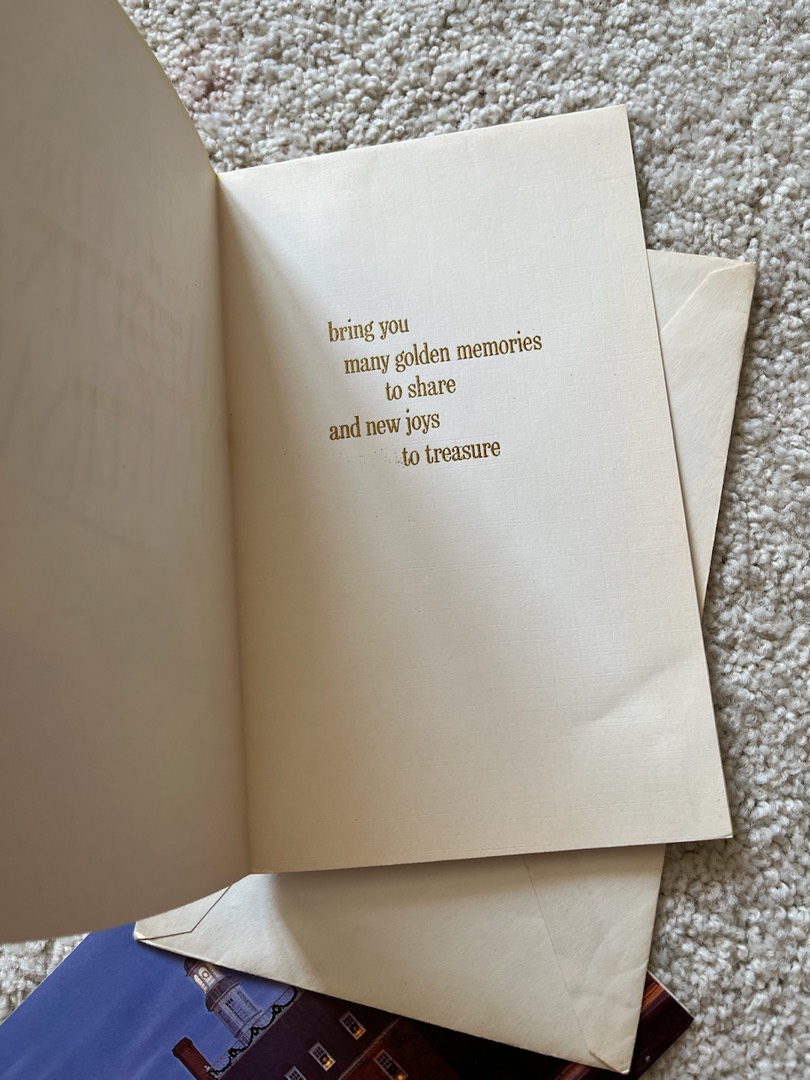 bring you
many golden memories
to share
and new joys
to treasure